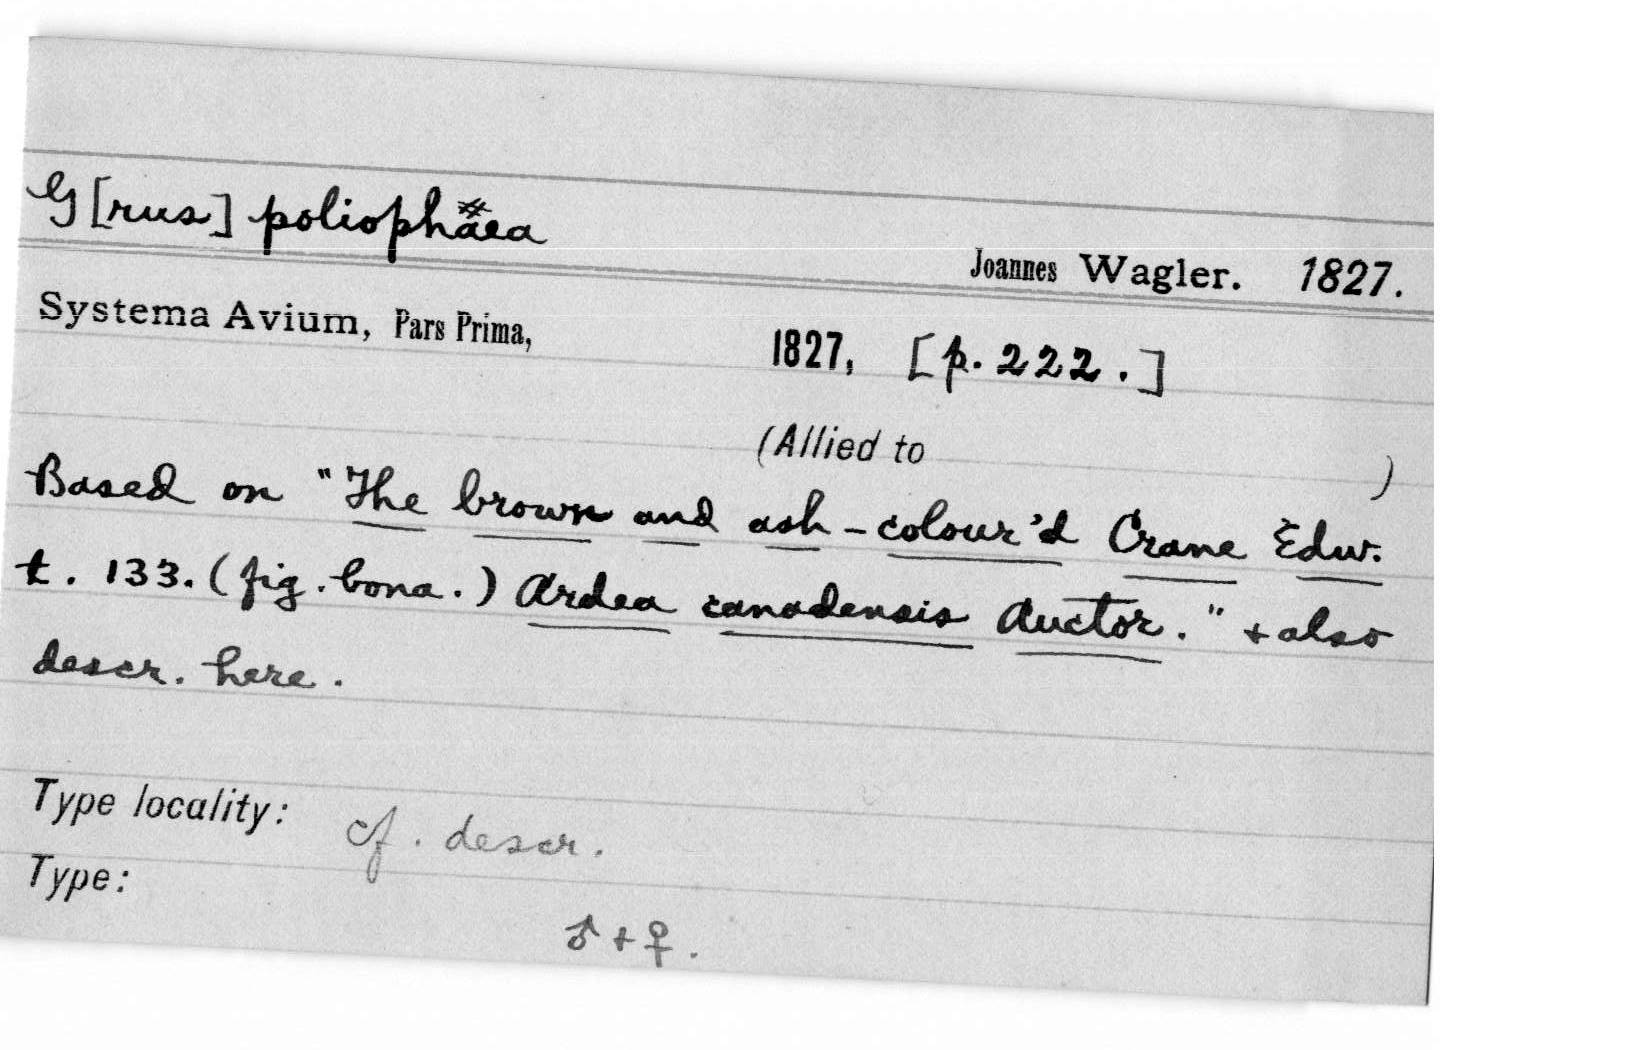 G[rus] poliophäea
Joannes Wagler. 1827.
Systema Avium, Pars Prima, 1827, [p. 222.]
(Allied to )
Based on "The brown and ash-colour'd Crane Edw.
t. 133. (fig. bona.) Ardea canadensis Auctor." + also
descr. here.
Type locality: cf. descr.
Type:
♂ + ♀.